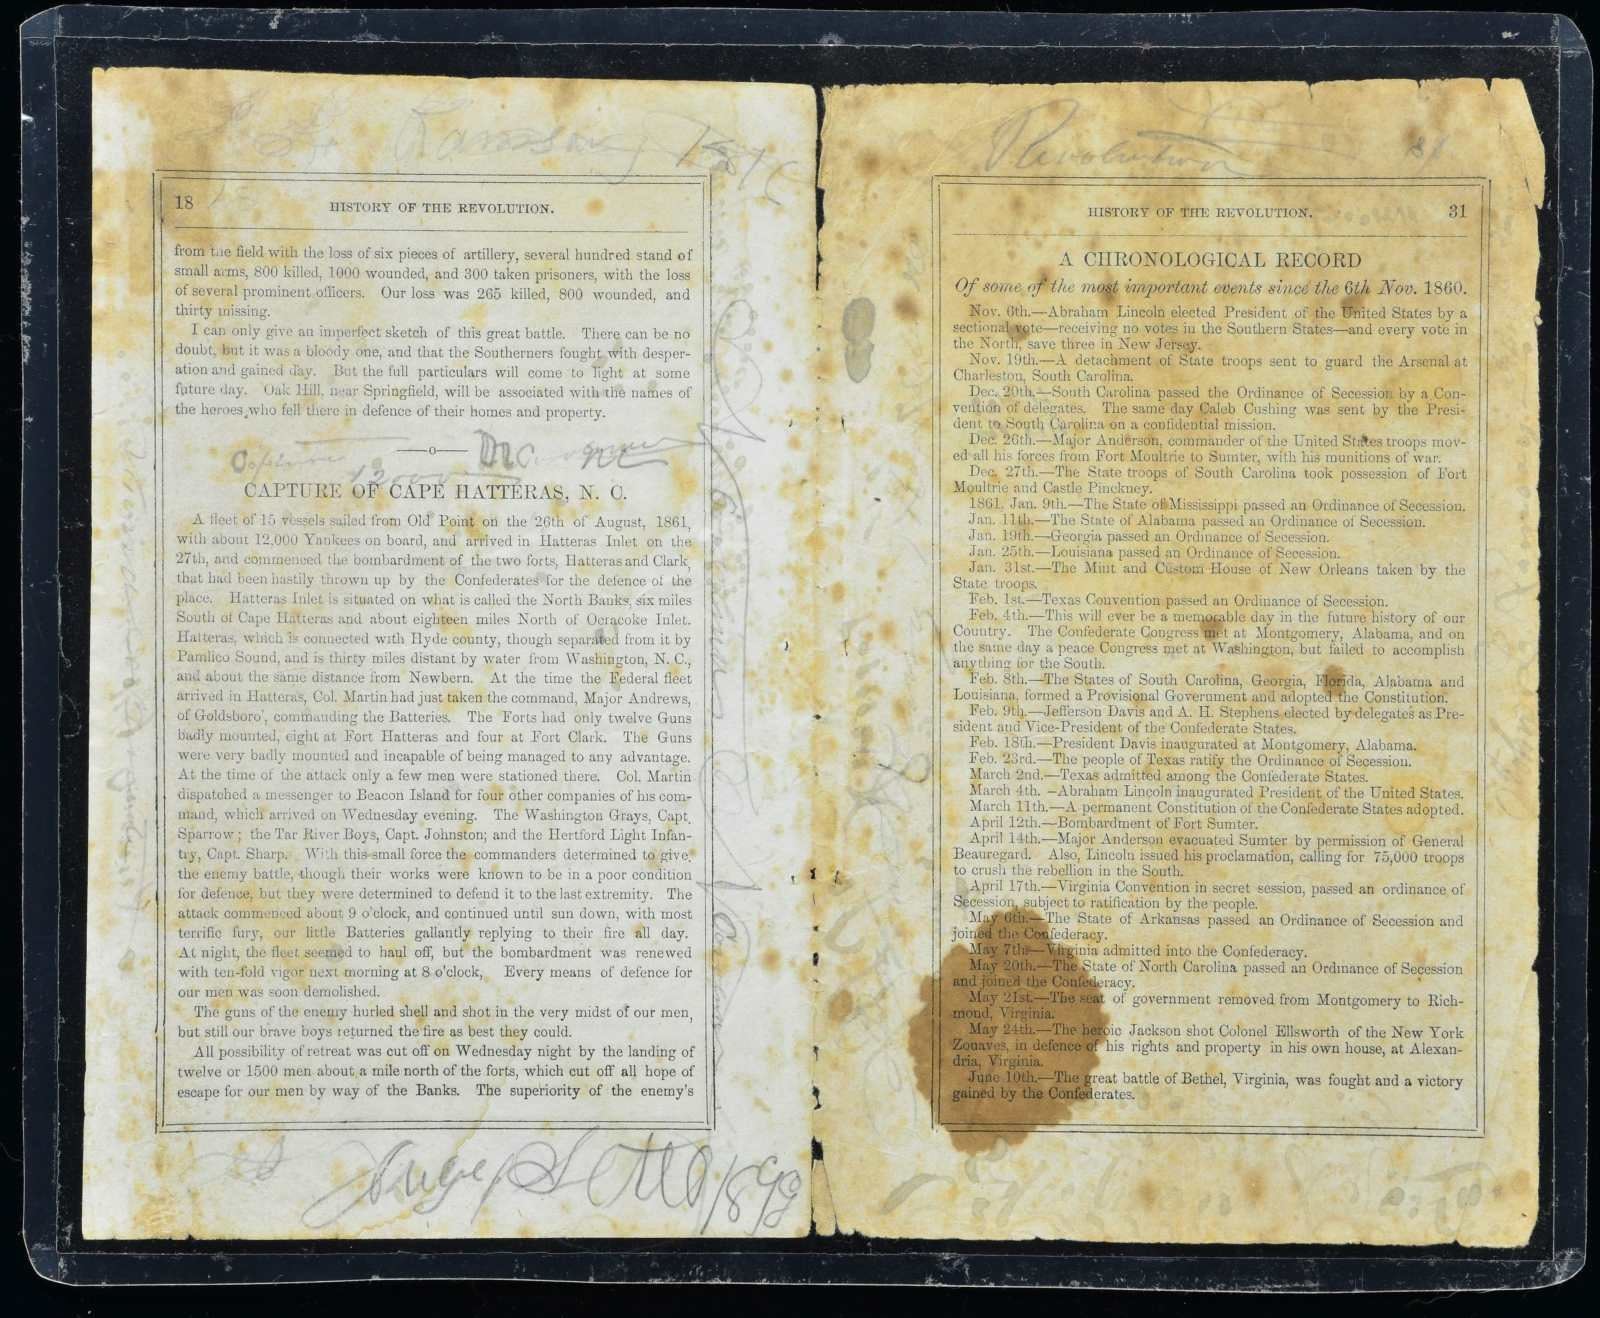 18
HISTORY OF THE REVOLUTION.
from the field with the loss of six pieces of artillery, several hundred stand of
small arms, 800 killed, 1000 wounded, and 300 taken prisoners, with the loss
of several prominent officers. Our loss was 265 killed, 800 wounded, and
thirty missing.
I can only give an imperfect sketch of this great battle. There can be no
doubt, but it was a bloody one, and that the Southerners fought with desper-
ation and gained day. But the full particulars will come to light at some
future day. Oak Hill, near Springfield, will be associated with the names of
the heroes who fell there in defence of their homes and property.
CAPTURE OF CAPE HATTERAS, N. C.
A fleet of 15 vessels sailed from Old Point on the 26th of August, 1861,
with about 12,000 Yankees on board, and arrived in Hatteras Inlet on the
27th, and commenced the bombardment of the two forts, Hatteras and Clark,
that had been hastily thrown up by the Confederates for the defence of the
place. Hatteras Inlet is situated on what is called the North Banks, six miles
South of Cape Hatteras and about eighteen miles North of Ocracoke Inlet.
Hatteras, which is connected with Hyde county, though separated from it by
Pamlico Sound, and is thirty miles distant by water from Washington, N. C.,
and about the same distance from Newbern. At the time the Federal fleet
arrived in Hatteras, Col. Martin had just taken the command, Major Andrews,
of Goldsboro', commanding the Batteries. The Forts had only twelve Guns
badly mounted, eight at Fort Hatteras and four at Fort Clark. The Guns
were very badly mounted and incapable of being managed to any advantage.
At the time of the attack only a few men were stationed there. Col. Martin
dispatched a messenger to Beacon Island for four other companies of his com-
mand, which arrived on Wednesday evening. The Washington Grays, Capt.
Sparrow; the Tar River Boys, Capt. Johnston; and the Hertford Light Infan-
try, Capt. Sharp. With this small force the commanders determined to give
the enemy battle, though their works were known to be in a poor condition
for defence, but they were determined to defend it to the last extremity. The
attack commenced about 9 o'clock, and continued until sun down, with most
terrific fury, our little Batteries gallantly replying to their fire all day.
At night, the fleet seemed to haul off, but the bombardment was renewed
with ten-fold vigor next morning at 8 o'clock, Every means of defence for
our men was soon demolished.
The guns of the enemy hurled shell and shot in the very midst of our men,
but still our brave boys returned the fire as best they could.
All possibility of retreat was cut off on Wednesday night by the landing of
twelve or 1500 men about a mile north of the forts, which cut off all hope of
escape for our men by way of the Banks. The superiority of the enemy's
1899
Revolution
31
HISTORY OF THE REVOLUTION.
31
A CHRONOLOGICAL RECORD
Of some of the most important events since the 6th Nov. 1860.
Nov. 6th.—Abraham Lincoln elected President of the United States by a
sectional vote—receiving no votes in the Southern States—and every vote in
the North, save three in New Jersey.
Nov. 19th.—A detachment of State troops sent to guard the Arsenal at
Charleston, South Carolina.
Dec. 20th.—South Carolina passed the Ordinance of Secession by a Con-
vention of delegates. The same day Caleb Cushing was sent by the Presi-
dent to South Carolina on a confidential mission.
Dec. 26th.—Major Anderson, commander of the United States troops mov-
ed all his forces from Fort Moultrie to Sumter, with his munitions of war.
Dec. 27th.—The State troops of South Carolina took possession of Fort
Moultrie and Castle Pinckney.
1861. Jan. 9th.—The State of Mississippi passed an Ordinance of Secession.
Jan. 11th.—The State of Alabama passed an Ordinance of Secession.
Jan. 19th.—Georgia passed an Ordinance of Secession.
Jan. 25th.—Louisiana passed an Ordinance of Secession.
Jan. 31st.—The Mint and Custom House of New Orleans taken by the
State troops.
Feb. 1st.—Texas Convention passed an Ordinance of Secession.
Feb. 4th.—This will ever be a memorable day in the future history of our
Country. The Confederate Congress met at Montgomery, Alabama, and on
the same day a peace Congress met at Washington, but failed to accomplish
anything for the South.
Feb. 8th.—The States of South Carolina, Georgia, Florida, Alabama and
Louisiana, formed a Provisional Government and adopted the Constitution.
Feb. 9th.—Jefferson Davis and A. H. Stephens elected by delegates as Pre-
sident and Vice-President of the Confederate States.
Feb. 18th.—President Davis inaugurated at Montgomery, Alabama.
Feb. 23rd.—The people of Texas ratify the Ordinance of Secession.
March 2nd.—Texas admitted among the Confederate States.
March 4th. —Abraham Lincoln inaugurated President of the United States.
March 11th.—A permanent Constitution of the Confederate States adopted.
April 12th.—Bombardment of Fort Sumter.
April 14th.—Major Anderson evacuated Sumter by permission of General
Beauregard. Also, Lincoln issued his proclamation, calling for 75,000 troops
to crush the rebellion in the South.
April 17th.—Virginia Convention in secret session, passed an ordinance of
Secession, subject to ratification by the people.
May 6th.—The State of Arkansas passed an Ordinance of Secession and
joined the Confederacy.
May 7th.—Virginia admitted into the Confederacy.
May 20th.—The State of North Carolina passed an Ordinance of Secession
and joined the Confederacy.
May 21st.—The seat of government removed from Montgomery to Rich-
mond, Virginia.
May 24th.—The heroic Jackson shot Colonel Ellsworth of the New York
Zouaves, in defence of his rights and property in his own house, at Alexan-
dria, Virginia.
June 10th.—The great battle of Bethel, Virginia, was fought and a victory
gained by the Confederates.